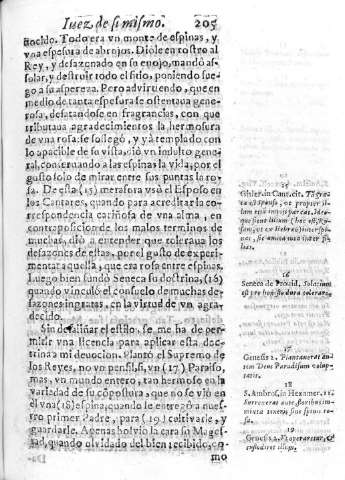 Iuez de si mismo. 205
nocido. Todo era vn monte de espinas, y
vna espesura de abrojos. Diòle en rostro al
Rey, y desazonado en su enojo, mandò as-
solar, y destruir todo el sitio, poniendo fue-
go a su aspereza. Pero advirtiendo, que en
medio de tanta espesura se ostentaua gene-
rosa, desatandose en fragrancias, con que
tributaua agradecimientos la hermosura
de vna rosa: se sossegò, y yà templado con
lo apacible de su vista, diò vn indulto gene-
ral, conseruando a las espinas la vida, por el
gusto solo de mirar entre sus puntas la ro-
sa. De esta (15) metafora vsò el Esposo en
los Cantares, quando para acreditar la co-
rrespondencia cariñosa de vna alma, en
contraposicion de los malos terminos de
muchas, diò a entender que toleraua los
desazones de estas, por el gusto de experi-
mentar aquella, que era rosa entre espinas.
Luego bien fundò Seneca su doctrina, (16)
quando vinculò el consuelo de muchas de-
sazones ingratas, en la virtud de vn agra-
decido.
Sin desaliñar el estilo, se me ha de per-
mitir vna licencia para aplicar esta doc-
trina a mi deuocion. Plantò el Supremo de
los Reyes, no vn pensil, si, vn (17) Paraiso,
mas, vn mundo entero, tan hermoso en la
variedad de su cõpostura, que no se viò en
el vna (18) espina, quando le entregò a nues-
tro primer Padre, para (19) cultivarle, y
guardarle. Apenas bolviò la cara su Mages-
tad, quando olvidado del bien recibido, co-
mo
15
Gisler. in Cant. cit.
16
Seneca de
17
Genesis 2. Plantauerat au-
tem Deus Paradisum volup-
tatis.
18
S. Ambros. in Hexamer.
19
Genesis 2. &
custodiret illum.